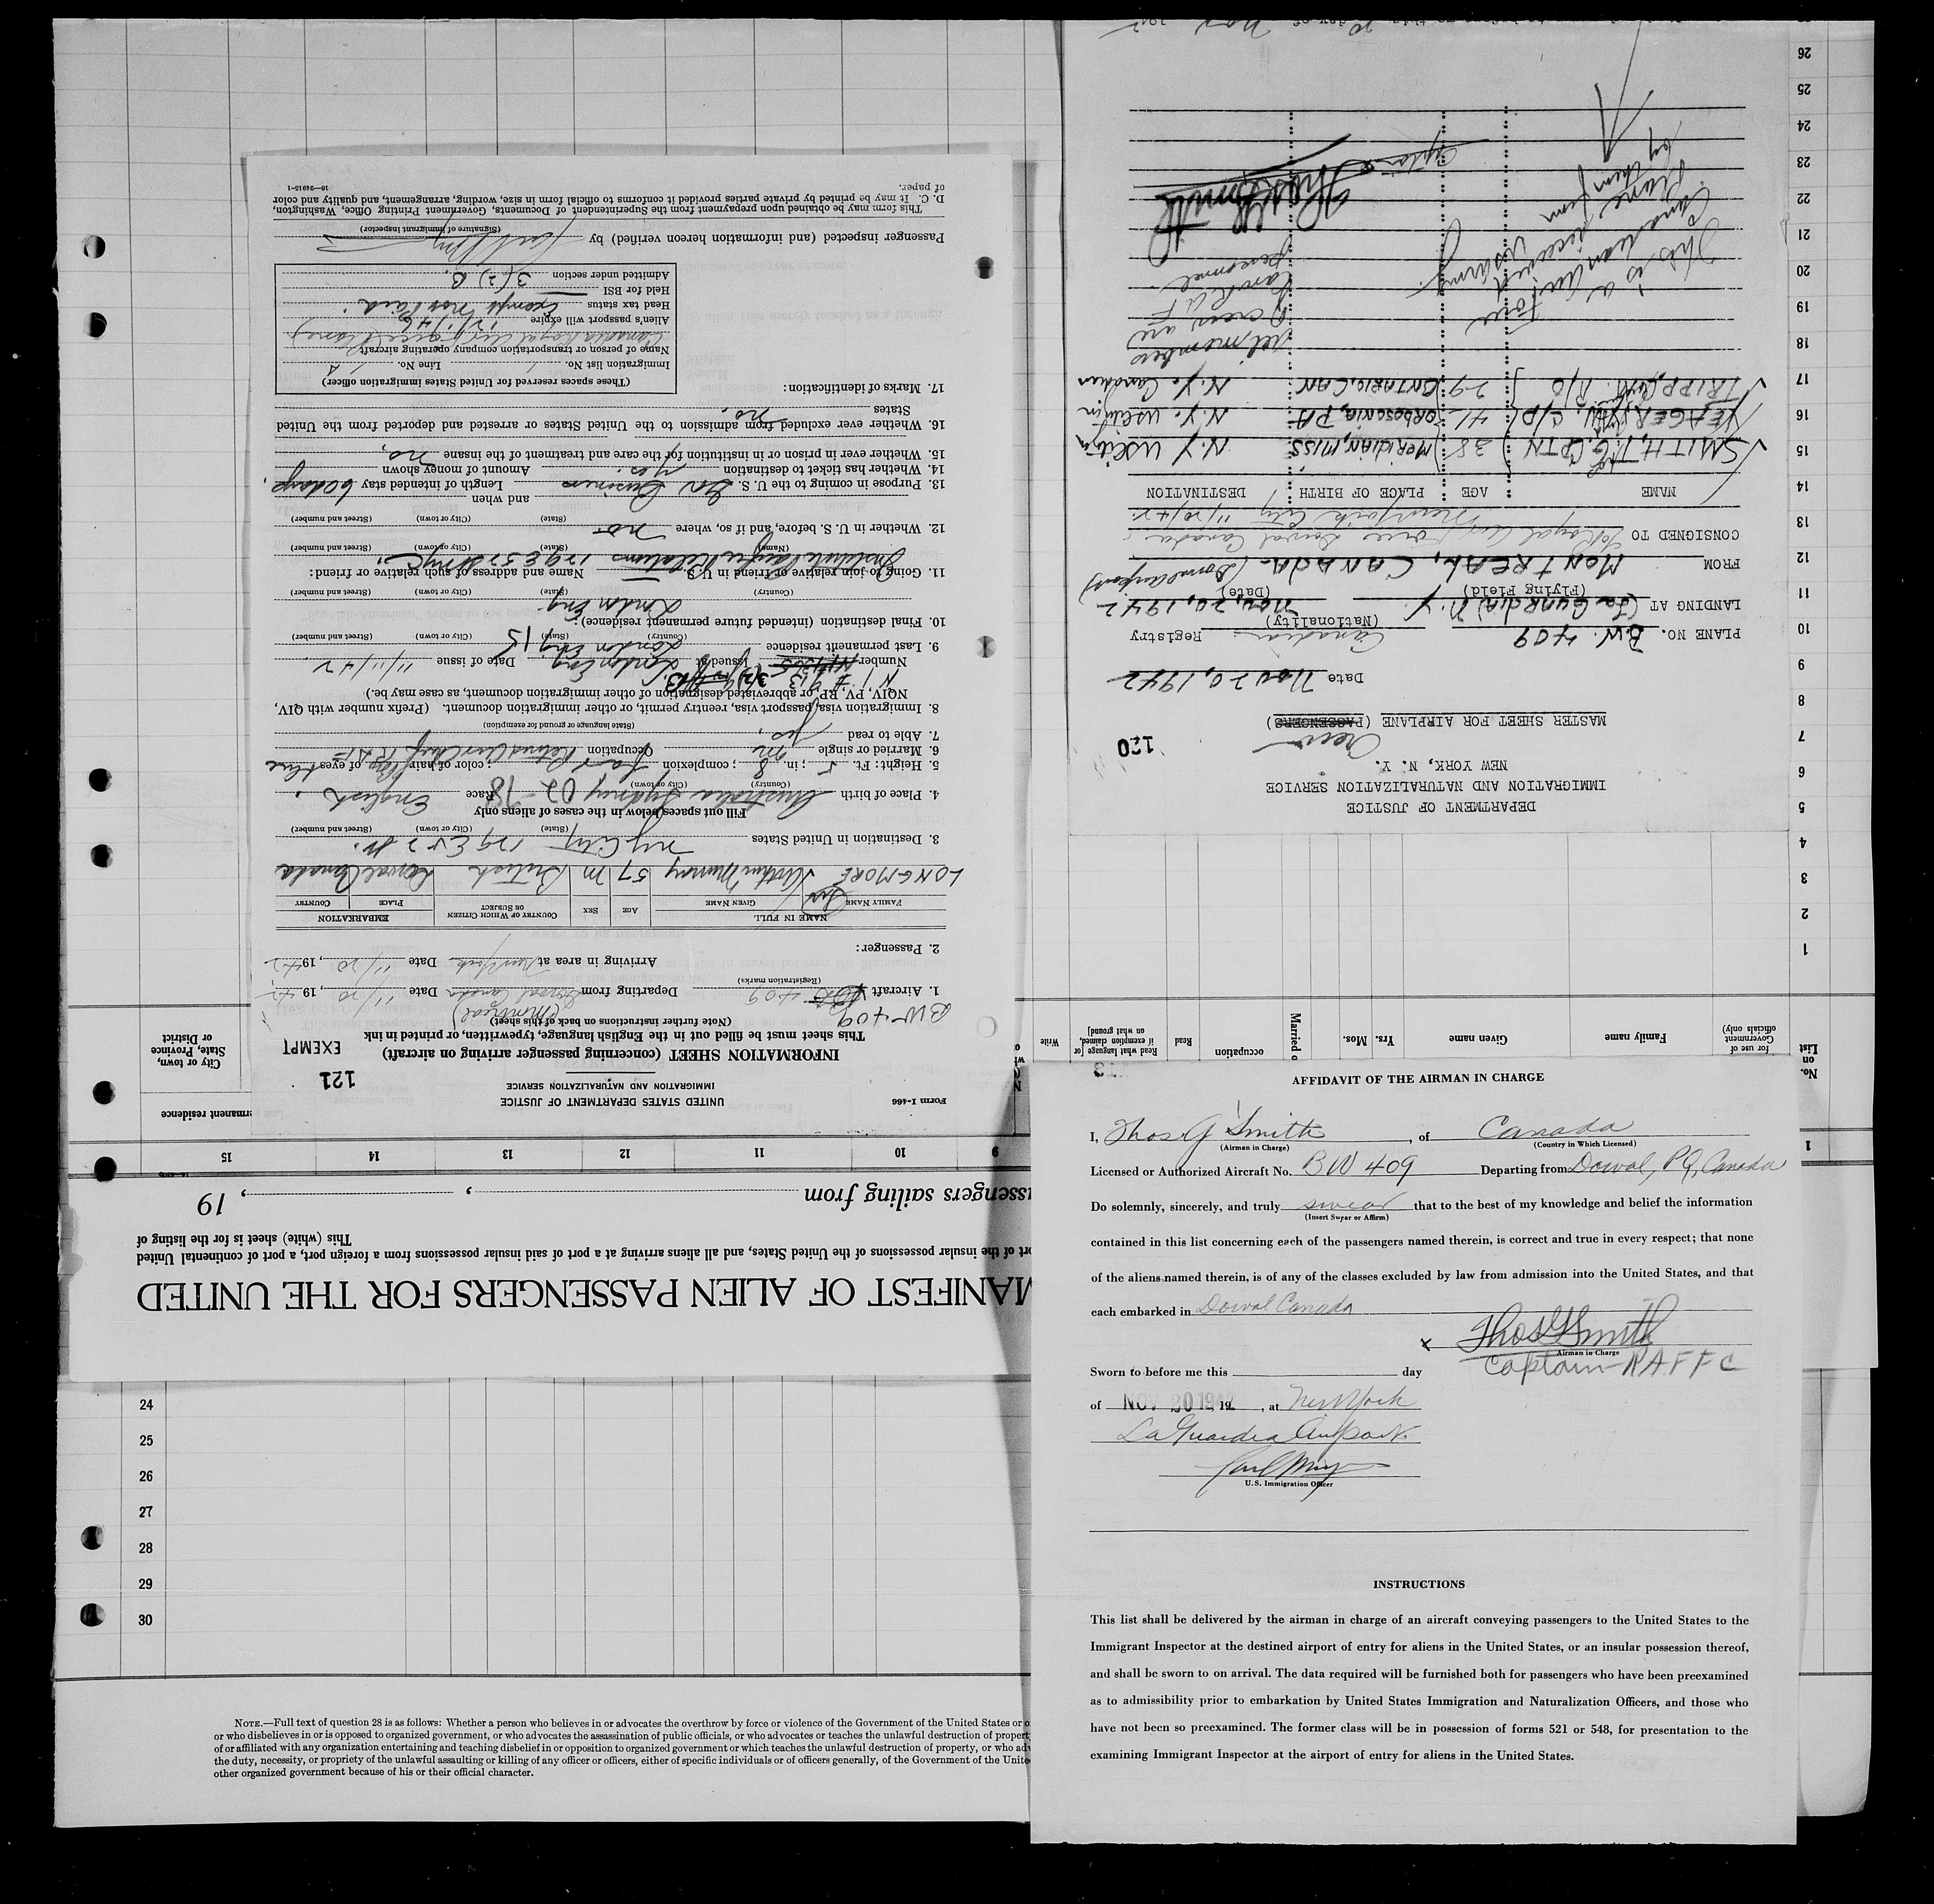 Form I-466
UNITED STATES DEPARTMENT OF JUSTICE
IMMIGRATION AND NATURALIZATION SERVICE
121
INFORMATION SHEET (concerning passenger arriving on aircraft)
EXEMPT
This sheet must be filled out in the English language, typewritten, or printed in ink
(Note further instructions on back of this sheet)
BW-409
(Montreal)
1. Aircraft 409 Departing from Dorval Canada Date 11/20, 1942
(Registration marks)
Arriving in area at New York Date 11/20, 1942
2. Passenger:
NAME IN FULL AGE SEX COUNTRY OF WHICH CITIZEN OR SUBJECT EMBARKATION
FAMILY NAME GIVEN NAME PLACE COUNTRY
LONGMORE Sir Arthur Murray 57 M British Dorval Canada
3. Destination in United States NY City 129 E 52 St.
(State) (City or town) (Street and number)
Fill out spaces below in the cases of aliens only
4. Place of birth Australia Sydney 02-78 Race English
(Country) (City or town)
5. Height: Ft. 5, in. 8; complexion fair; color of hair grey, of eyes blue
6. Married or single m Occupation Retired Air Chief RAF
7. Able to read yes
(State language or ground for exemption)
8. Immigration visa, passport visa, reentry permit, or other immigration document. (Prefix number with QIV,
NQIV, PV, RP, or abbreviated designation of other immigration document, as case may be.)
Number Issued at London Eng. Date of issue 11/11/42
9. Last permanent residence London Eng 15
(Country) (State) (City or town) (Street and number)
10. Final destination (intended future permanent residence):
London Eng.
(Country) (State) (City or town) (Street and number)
11. Going to join relative or friend in U.S. Name and address of such relative or friend:
Institute Pacific Relations 129 E 52 St NYC
(Name) (State) (City or town) (Street and number)
12. Whether in U. S. before, and if so, where no
(State) (City or town) (Street and number)
and when
13. Purpose in coming to the U. S. Business Length of intended stay 60 days.
14. Whether has ticket to destination yes. Amount of money shown
15. Whether ever in prison or in institution for the care and treatment of the insane no.
16. Whether ever excluded from admission to the United States or arrested and deported from the United
States no.
17. Marks of identification:
(These spaces reserved for United States immigration officer)
Immigration list No. 1 Line No. 1
Name of person or transportation company operating aircraft
Canadian Royal Air Force (plane)
Alien's passport will expire
Head tax status Exempt not paid
Held for BSI
Admitted under section 3(2) B.
Passenger inspected (and information hereon verified) by
(Signature of immigrant inspector)
This form may be obtained upon prepayment from the Superintendent of Documents, Government Printing Office, Washington,
D. C. It may be printed by private parties provided it conforms to official form in size, wording, arrangement, and quality and color
of paper.
16—24915-1
DEPARTMENT OF JUSTICE
IMMIGRATION AND NATURALIZATION SERVICE
NEW YORK, N. Y.
120
Crew
MASTER SHEET FOR AIRPLANE (PASSENGERS)
Date Nov 20, 1942
PLANE NO. B.W. 409 Canadian Registry
(Nationality)
LANDING AT (La Guardia) N.Y. Nov. 20, 1942
(Flying Field) (Date)
FROM MONTREAL, CANADA (Dorval airport)
CONSIGNED TO Royal Air Force Dorval Canada
New York City 11/20/42
NAME AGE PLACE OF BIRTH DESTINATION
SMITH, T. G. CPTN 38 MERIDIAN, MISS N.Y. US Citizen
YEAGER, W. C/P 41 ORBOSONIA, PA N.Y. US Citizen
TRIPP, M. R/O 29 ONTARIO, CAN N.Y. Canadian
All members
of crew are
personnel
This is a
Canadian Air Force
plane
by them from
Thos G Smith
Captain
1
2
3
4
5
6
7
8
9
10
11
12
13
14
15
16
17
18
19
20
21
22
23
24
25
26
No. on List
for use of Government officials only)
Family name
Given name
Yrs.
Mos.
Married o
occupation
Read
Read what language [or if exemption claimed, on what ground]
Write
City or town, State, Province or District
rmanent residence
1
9
10
11
12
13
14
15
ssengers sailing from , , 19
This (white) sheet is for the listing of
ort of the insular possessions of the United States, and all aliens arriving at a port of said insular possessions from a foreign port, a port of continental United
MANIFEST OF ALIEN PASSENGERS FOR THE UNITED
24
25
26
27
28
29
30
NOTE.—Full text of question 28 is as follows: Whether a person who believes in or advocates the overthrow by force or violence of the Government of the United States or o
or who disbelieves in or is opposed to organized government, or who advocates the assassination of public officials, or who advocates or teaches the unlawful destruction of propert
of or affiliated with any organization entertaining and teaching disbelief in or opposition to organized government or which teaches the unlawful destruction of property, or who adv
the duty, necessity, or propriety of the unlawful assaulting or killing of any officer or officers, either of specific individuals or of officers generally, of the Government of the Unite
other organized government because of his or their official character.
AFFIDAVIT OF THE AIRMAN IN CHARGE
I, Thos. G Smith, of Canada
(Airman in Charge) (Country in Which Licensed)
Licensed or Authorized Aircraft No. BW 409 Departing from Dorval, PQ, Canada
Do solemnly, sincerely, and truly swear that to the best of my knowledge and belief the information
(Insert Swear or Affirm)
contained in this list concerning each of the passengers named therein, is correct and true in every respect; that none
of the aliens named therein, is of any of the classes excluded by law from admission into the United States, and that
each embarked in Dorval Canada
x Thos G Smith
Airman in Charge
Captain—RAFFC
Sworn to before me this day
of NOV 20 1942, 19 , at New York
LaGuardia Airport.
U.S. Immigration Officer
INSTRUCTIONS
This list shall be delivered by the airman in charge of an aircraft conveying passengers to the United States to the
Immigrant Inspector at the destined airport of entry for aliens in the United States, or an insular possession thereof,
and shall be sworn to on arrival. The data required will be furnished both for passengers who have been preexamined
as to admissibility prior to embarkation by United States Immigration and Naturalization Officers, and those who
have not been so preexamined. The former class will be in possession of forms 521 or 548, for presentation to the
examining Immigrant Inspector at the airport of entry for aliens in the United States.